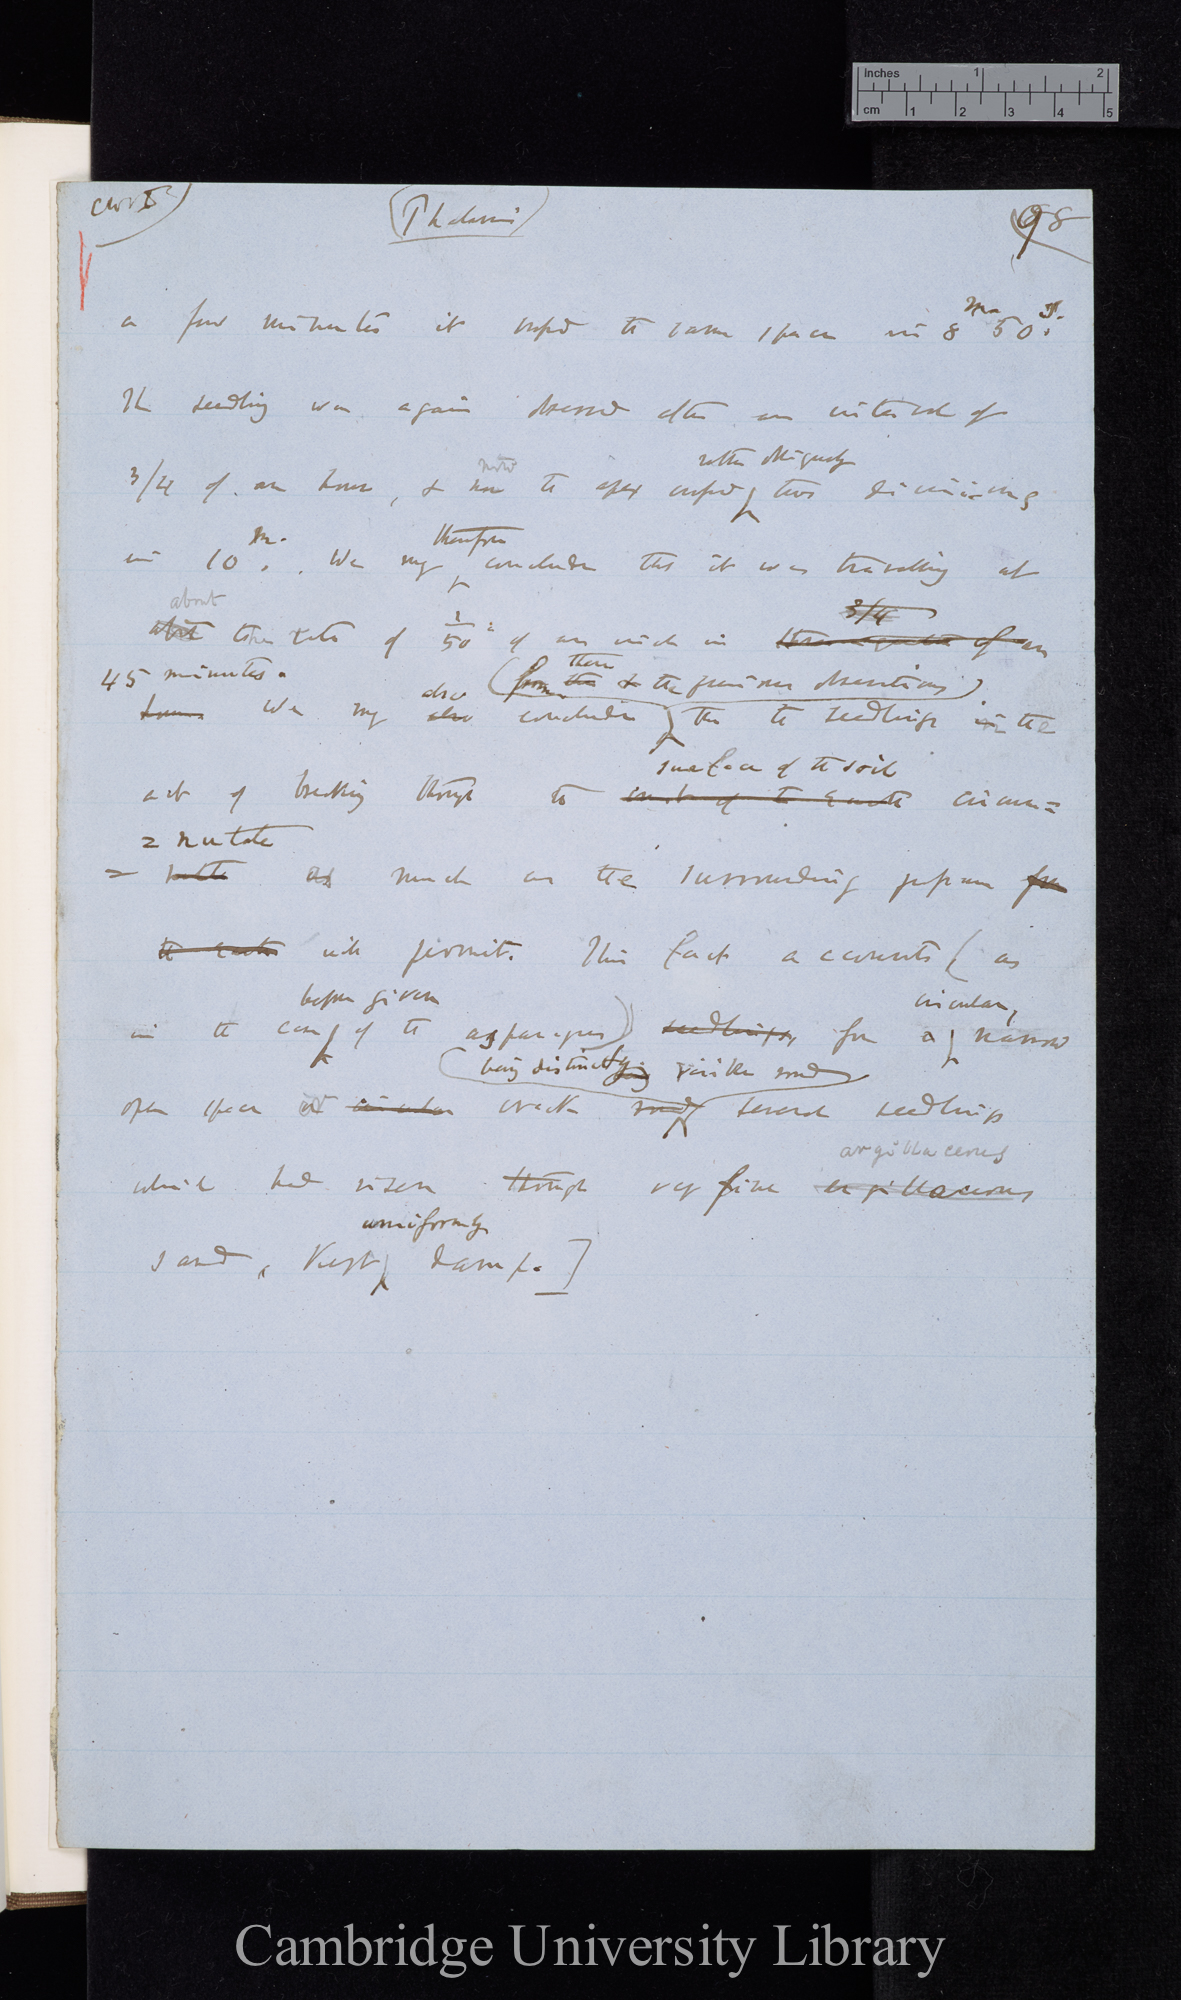 inches 1 2
cm 1 2 3 4 5
Ch I
(Phalaris)
98
a few minutes it crossed the same space in 8 m 50 s.
The seedling was again observed after an interval of
now rather obliquely
3/4 of an hour, & now the apex crossed two divisions
m. therefore
in 10. We may conclude that it was travelling at
about 3/4
about the rate of 1/50 of an inch in three quarters of an
45 minutes. also (from these & the previous observations)
hour We may also conclude that the seedlings in the
surface of the soil
act of breaking through the crust of the earth circum=
=nutate
= as much as the surrounding pressure from
the earth will permit. This fact accounts (as
before given circular,
in the case of the asparagus) seedlings, for a narrow
being distinctly visible round
open space or circular crack round several seedlings
argillaceous
which had risen through very fine argillaceous
uniformly
sand, kept damp.]
Cambridge University Library